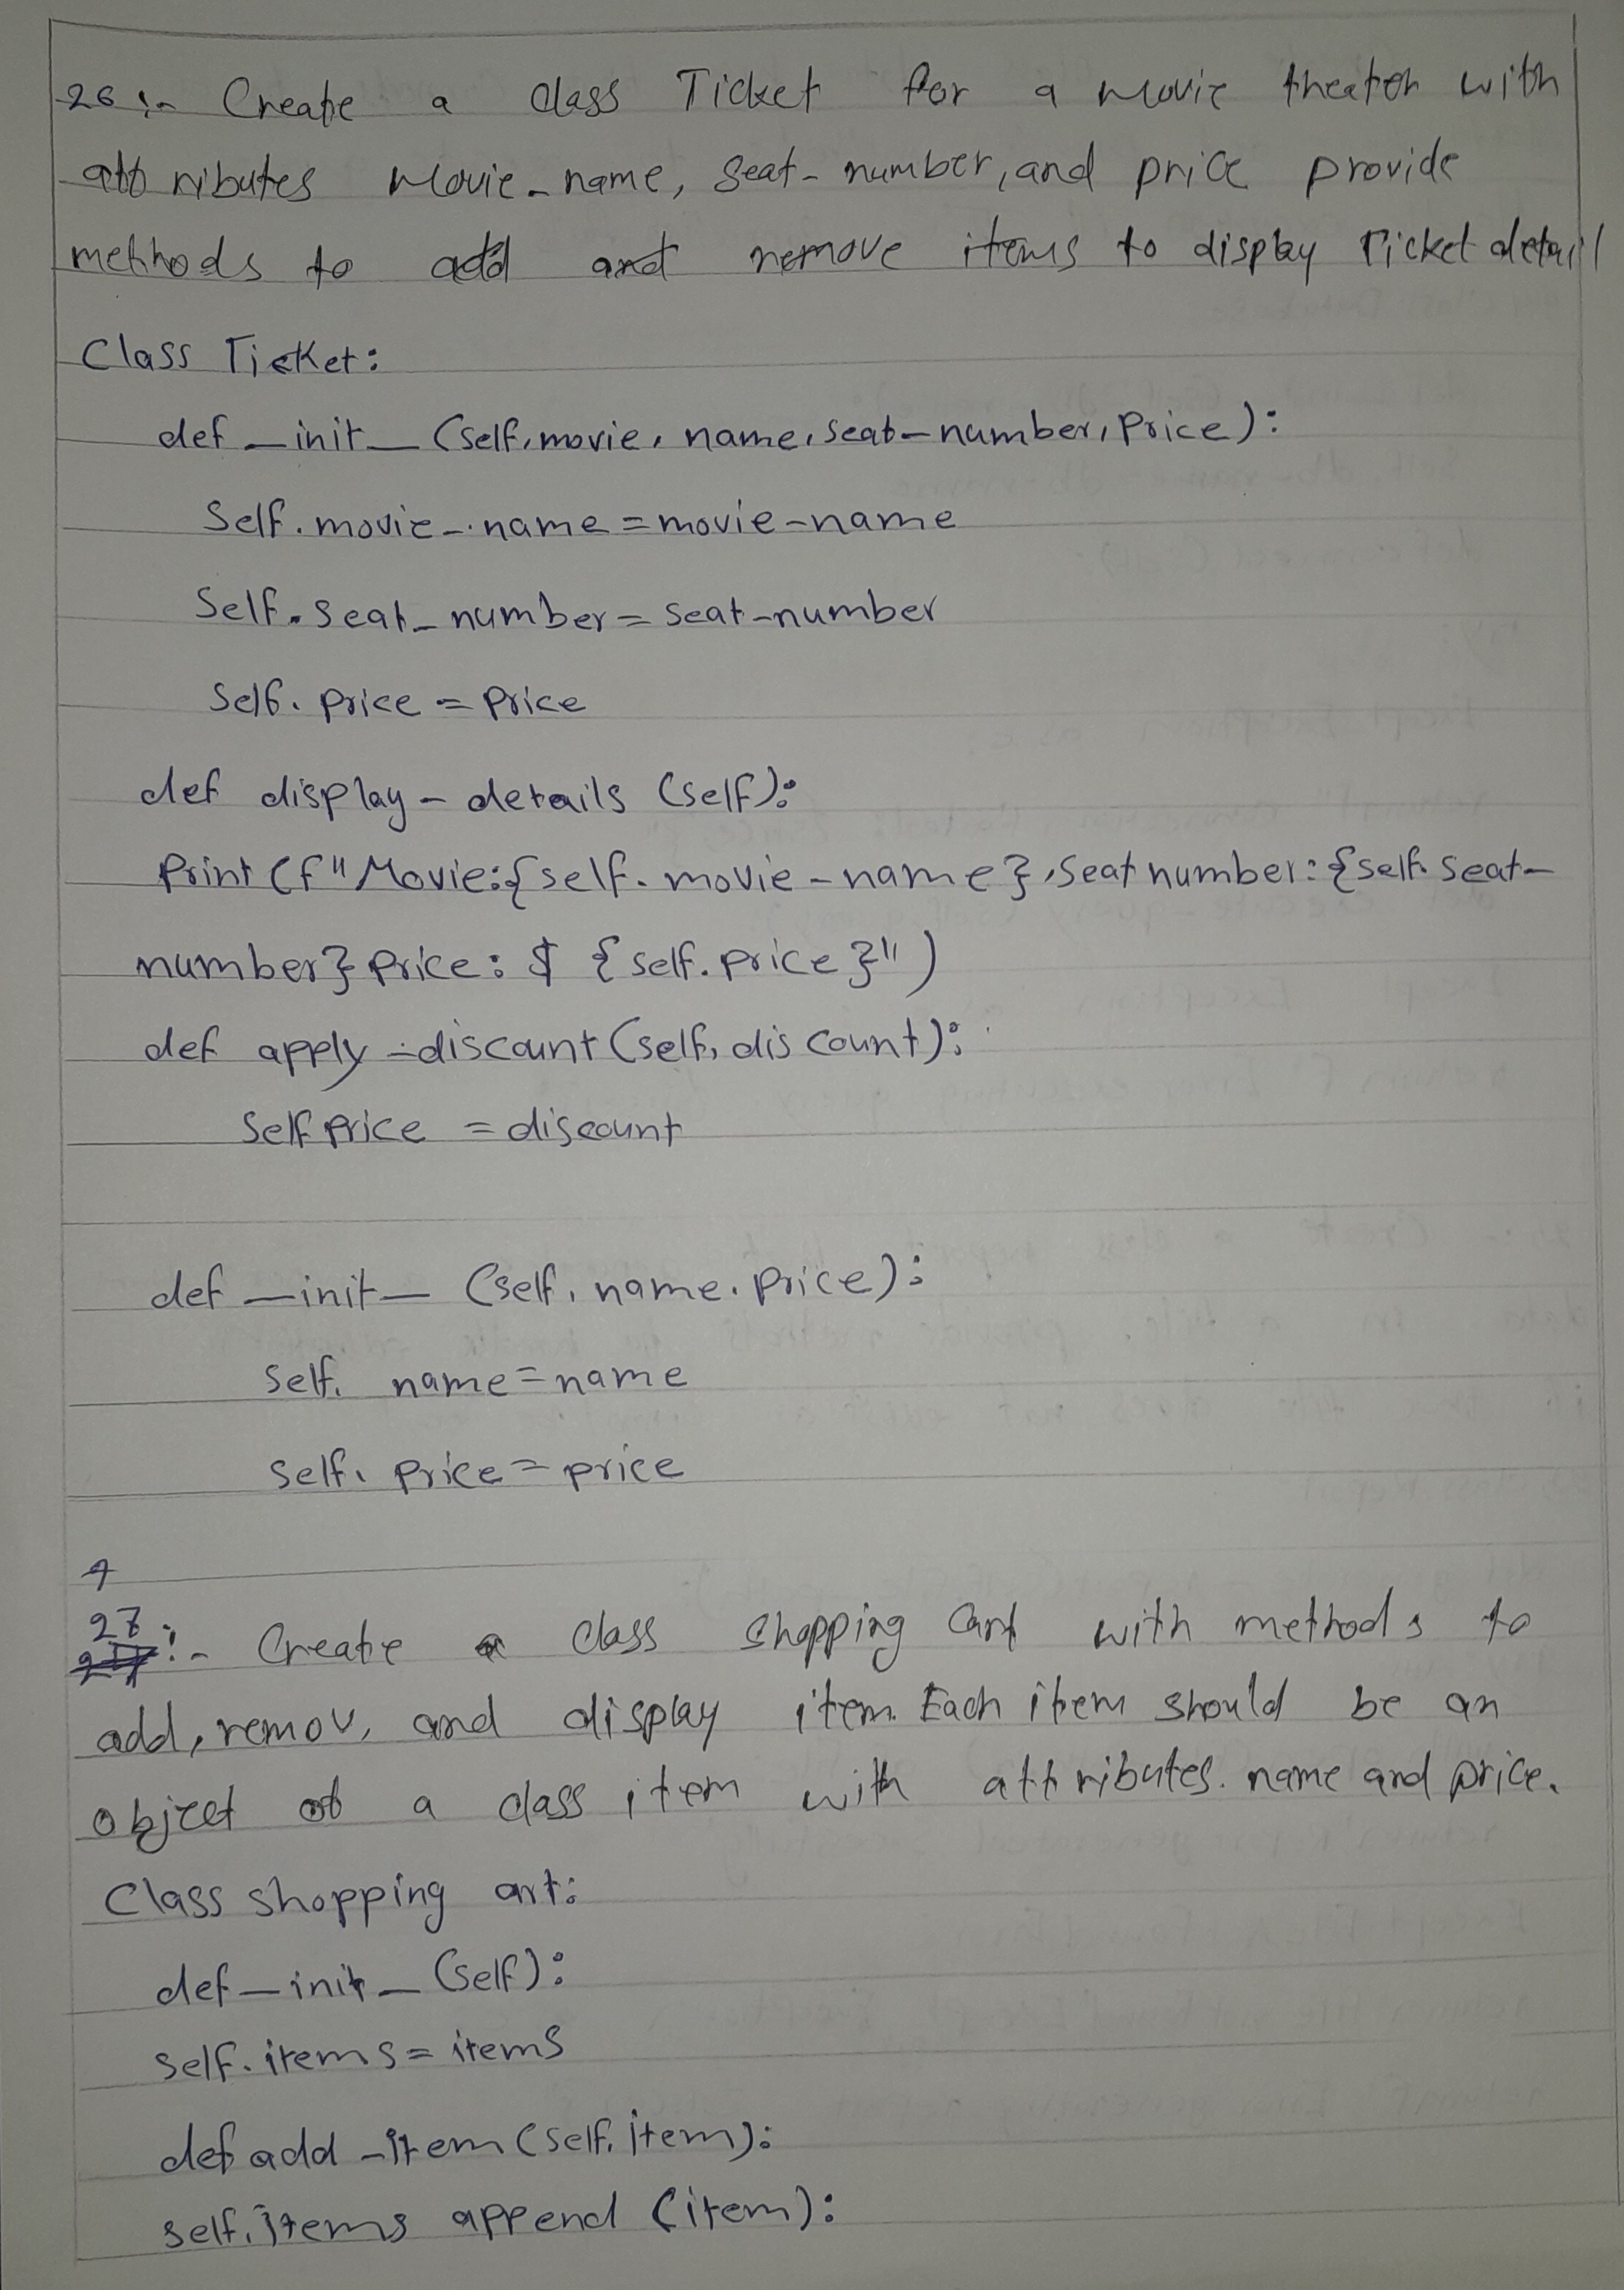 26:- Create a class Ticket for a movie theater with
attributes movie_name, seat-number, and price provide
methods to add and remove items to display Ticket detail
Class Ticket:
def _init_ (self, movie, name, seat-number, Price):
Self.movie_name = movie-name
Self.seat_number = seat-number
Self.price = Price
def display-details (self):
Print (f"Movie:{self.movie-name}, Seat number:{self.seat-
number} Price: $ {self.price}")
def apply-discount (self, dis count):
Self price = discount
def _init_ (self, name. price):
self. name = name
self. price = price
27:- Create a class shopping cart with methods to
add, remov, and display item. Each item should be an
object of a class item with attributes. name and price.
Class shopping art:
def _init_ (self):
self.items = items
def add-item (self, item):
self.items append (item):